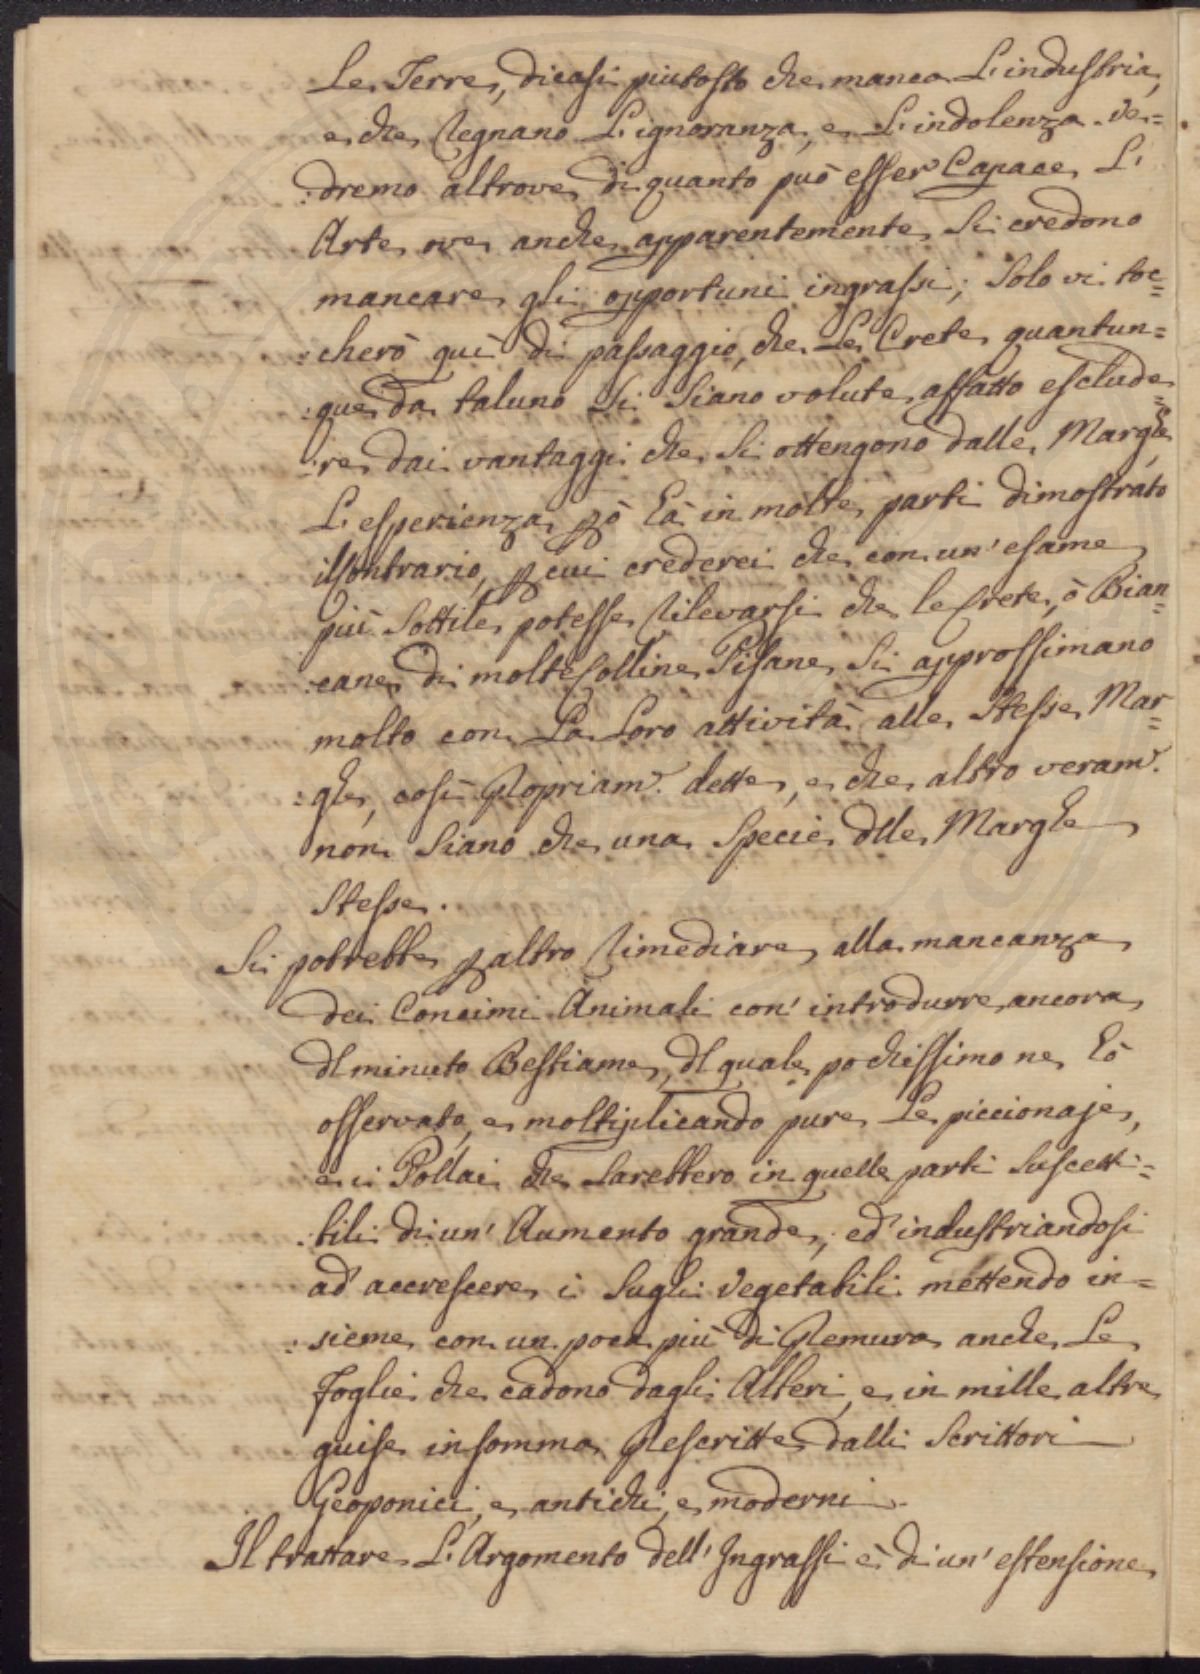 Le Terre, dicasi piutosto che manca L'industria,
e che Regnano L'ignoranza, e L'indolenza. Ve=
:dremo altrove di quanto può esser Capace L'
Arte ove anche apparentemente si credono
mancare gli opportuni ingrassi; Solo vi toc=
:cherò qui di passaggio, che Le Crete quantun=
:que da taluno si siano volute affatto esclude=
:re dai vantaggi che si ottengono dalle Marghe,
L'esperienza però hà in molte parti dimostrato
il Contrario, per cui crederei che con un' esame
più Sottile potesse Rilevarsi che le Crete, ò Bian=
:cane di molte Colline Pisane si approssimano
molto con La Loro attività alle Stesse Mar=
:ghe, così Propriam.e dette, e che altro veram.e
non siano che una Specie dlle Marghe
Stesse.
Si potrebbe per altro Rimediare alla mancanza
dei Concimi Animali con' introdurre ancora
dl minuto Bestiame, dl quale pochissimo ne hò
osservato, e moltiplicando pure Le piccionaje,
e i Pollai che sarebbero in quelle parti suscetti=
:bili di un' Aumento grande; ed' industriandosi
ad' accrescere i Sughi Vegetabili mettendo in=
:sieme con un poca più di Premura anche Le
foglie che cadono dagli Alberi, e in mille altre
guise insomma Prescritte dalli Scrittori
Geoponici, e antichi, e moderni.
Il trattare L'Argomento dell' Ingrassi è di un' estensione